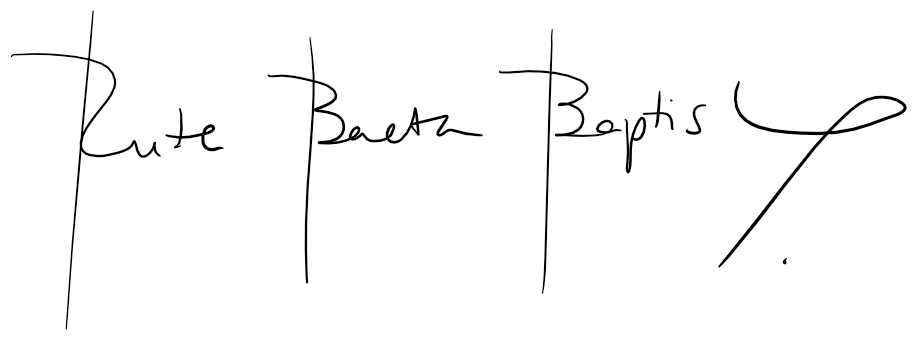 Rute Baeta Baptista